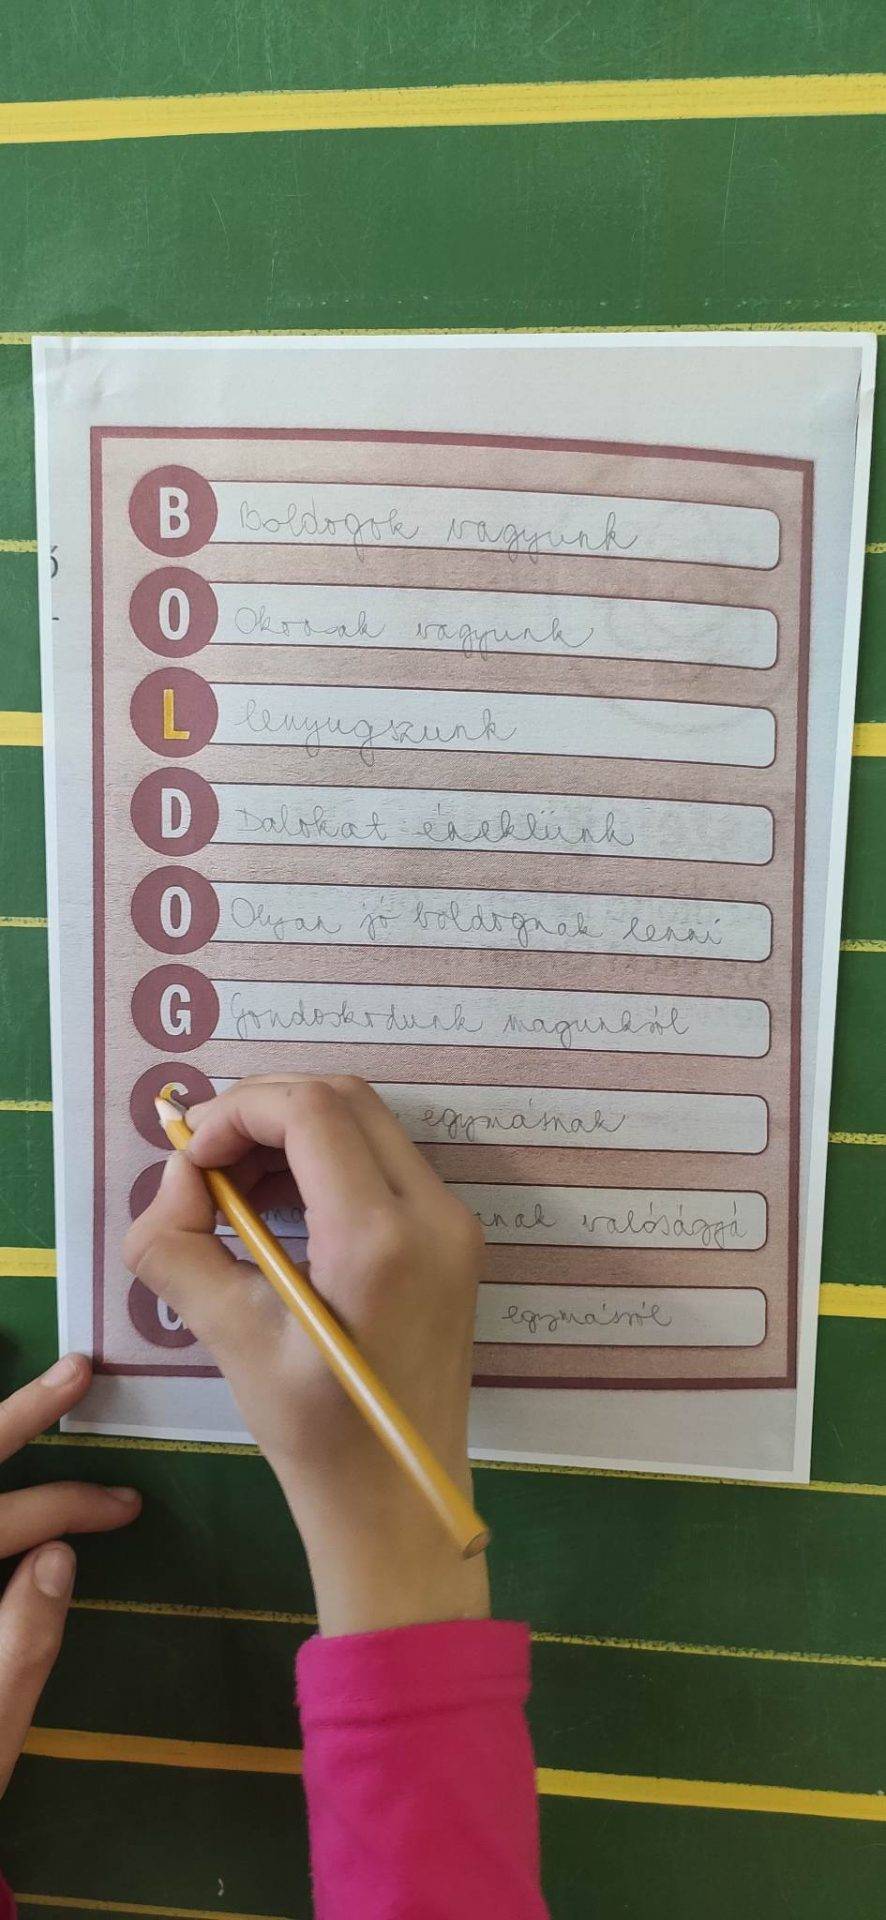 B Boldogok vagyunk
O Okosak vagyunk
L lenyugszunk
D Dalokat éneklünk
O Olyan jó boldognak lenni
G Gondoskodunk magunkról
S egymásnak
valósággá
G egymásról